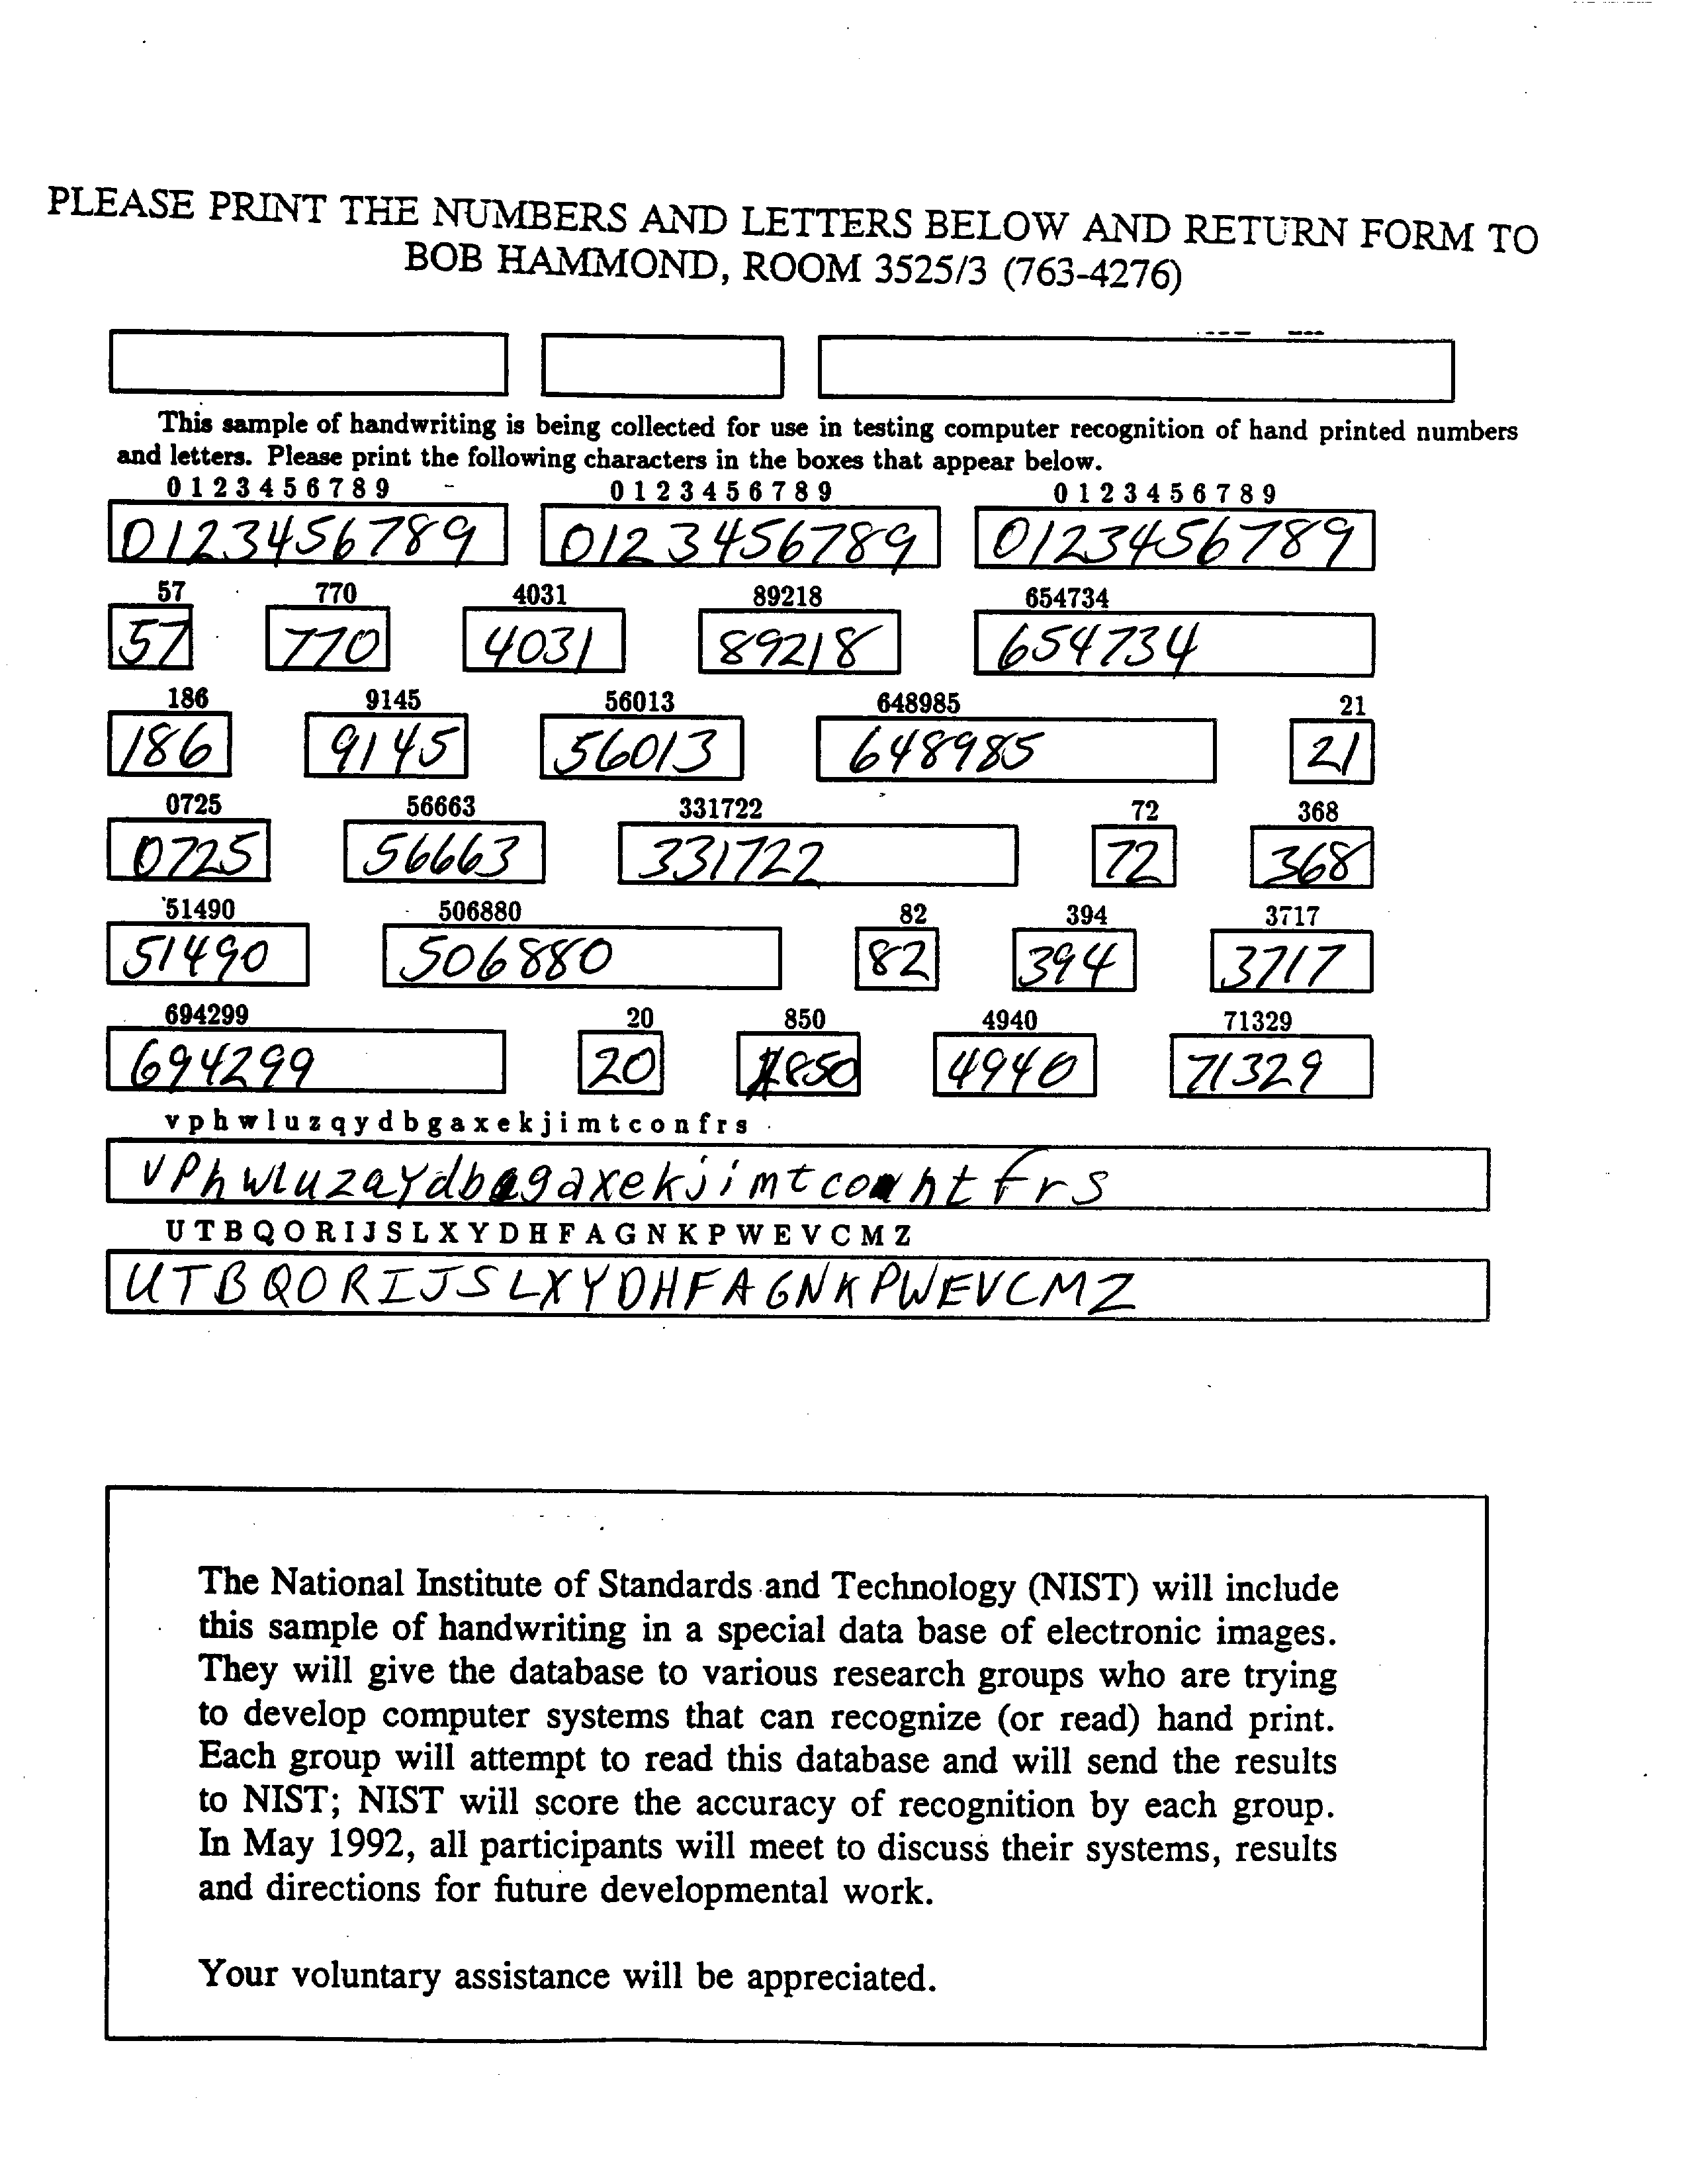 PLEASE PRINT THE NUMBERS AND LETTERS BELOW AND RETURN FORM TO
BOB HAMMOND, ROOM 3525/3 (763-4276)
This sample of handwriting is being collected for use in testing computer recognition of hand printed numbers
and letters. Please print the following characters in the boxes that appear below.
0 1 2 3 4 5 6 7 8 9 0 1 2 3 4 5 6 7 8 9 0 1 2 3 4 5 6 7 8 9
0123456789 0123456789 0123456789
57 770 4031 89218 654734
57 770 4031 89218 654734
186 9145 56013 648985 21
186 9145 56013 648985 21
0725 56663 331722 72 368
0725 56663 331722 72 368
51490 506880 82 394 3717
51490 506880 82 394 3717
694299 20 850 4940 71329
694299 20 850 4940 71329
v p h w l u z q y d b g a x e k j i m t c o n f r s
vPhwluzaydbgaxekjimtconhtfrs
U T B Q O R I J S L X Y D H F A G N K P W E V C M Z
UTBQORIJSLXYDHFAGNKPWEVCMZ
The National Institute of Standards and Technology (NIST) will include
this sample of handwriting in a special data base of electronic images.
They will give the database to various research groups who are trying
to develop computer systems that can recognize (or read) hand print.
Each group will attempt to read this database and will send the results
to NIST; NIST will score the accuracy of recognition by each group.
In May 1992, all participants will meet to discuss their systems, results
and directions for future developmental work.
Your voluntary assistance will be appreciated.